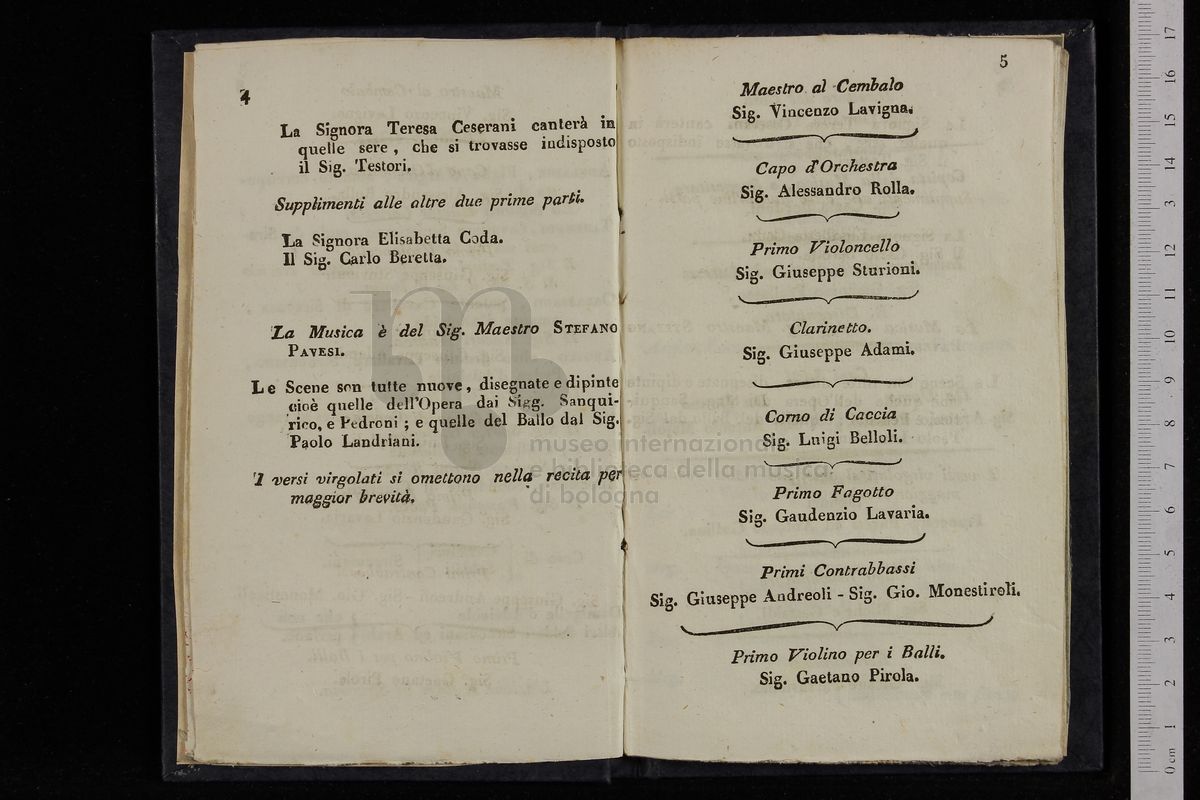 4
La Signora Teresa Ceserani canterà in
quelle sere, che si trovasse indisposto
il Sig. Testori.
Supplimenti alle altre due prime parti.
La Signora Elisabetta Coda.
Il Sig. Carlo Beretta.
La Musica è del Sig. Maestro STEFANO
PAVESI.
Le Scene son tutte nuove, disegnate e dipinte
cioè quelle dell'Opera dai Sigg. Sanqui-
rico, e Pedroni; e quelle del Ballo dal Sig.
Paolo Landriani.
I versi virgolati si omettono nella recita per
maggior brevità.
5
Maestro al Cembalo
Sig. Vincenzo Lavigna.
Capo d'Orchestra
Sig. Alessandro Rolla.
Primo Violoncello
Sig. Giuseppe Sturioni.
Clarinetto.
Sig. Giuseppe Adami.
Corno di Caccia
Sig. Luigi Belloli.
Primo Fagotto
Sig. Gaudenzio Lavaria.
Primi Contrabbassi
Sig. Giuseppe Andreoli - Sig. Gio. Monestiroli.
Primo Violino per i Balli.
Sig. Gaetano Pirola.
museo internazionale
e biblioteca della musica
di bologna
0 cm 1 2 3 4 5 6 7 8 9 10 11 12 13 14 15 16 17